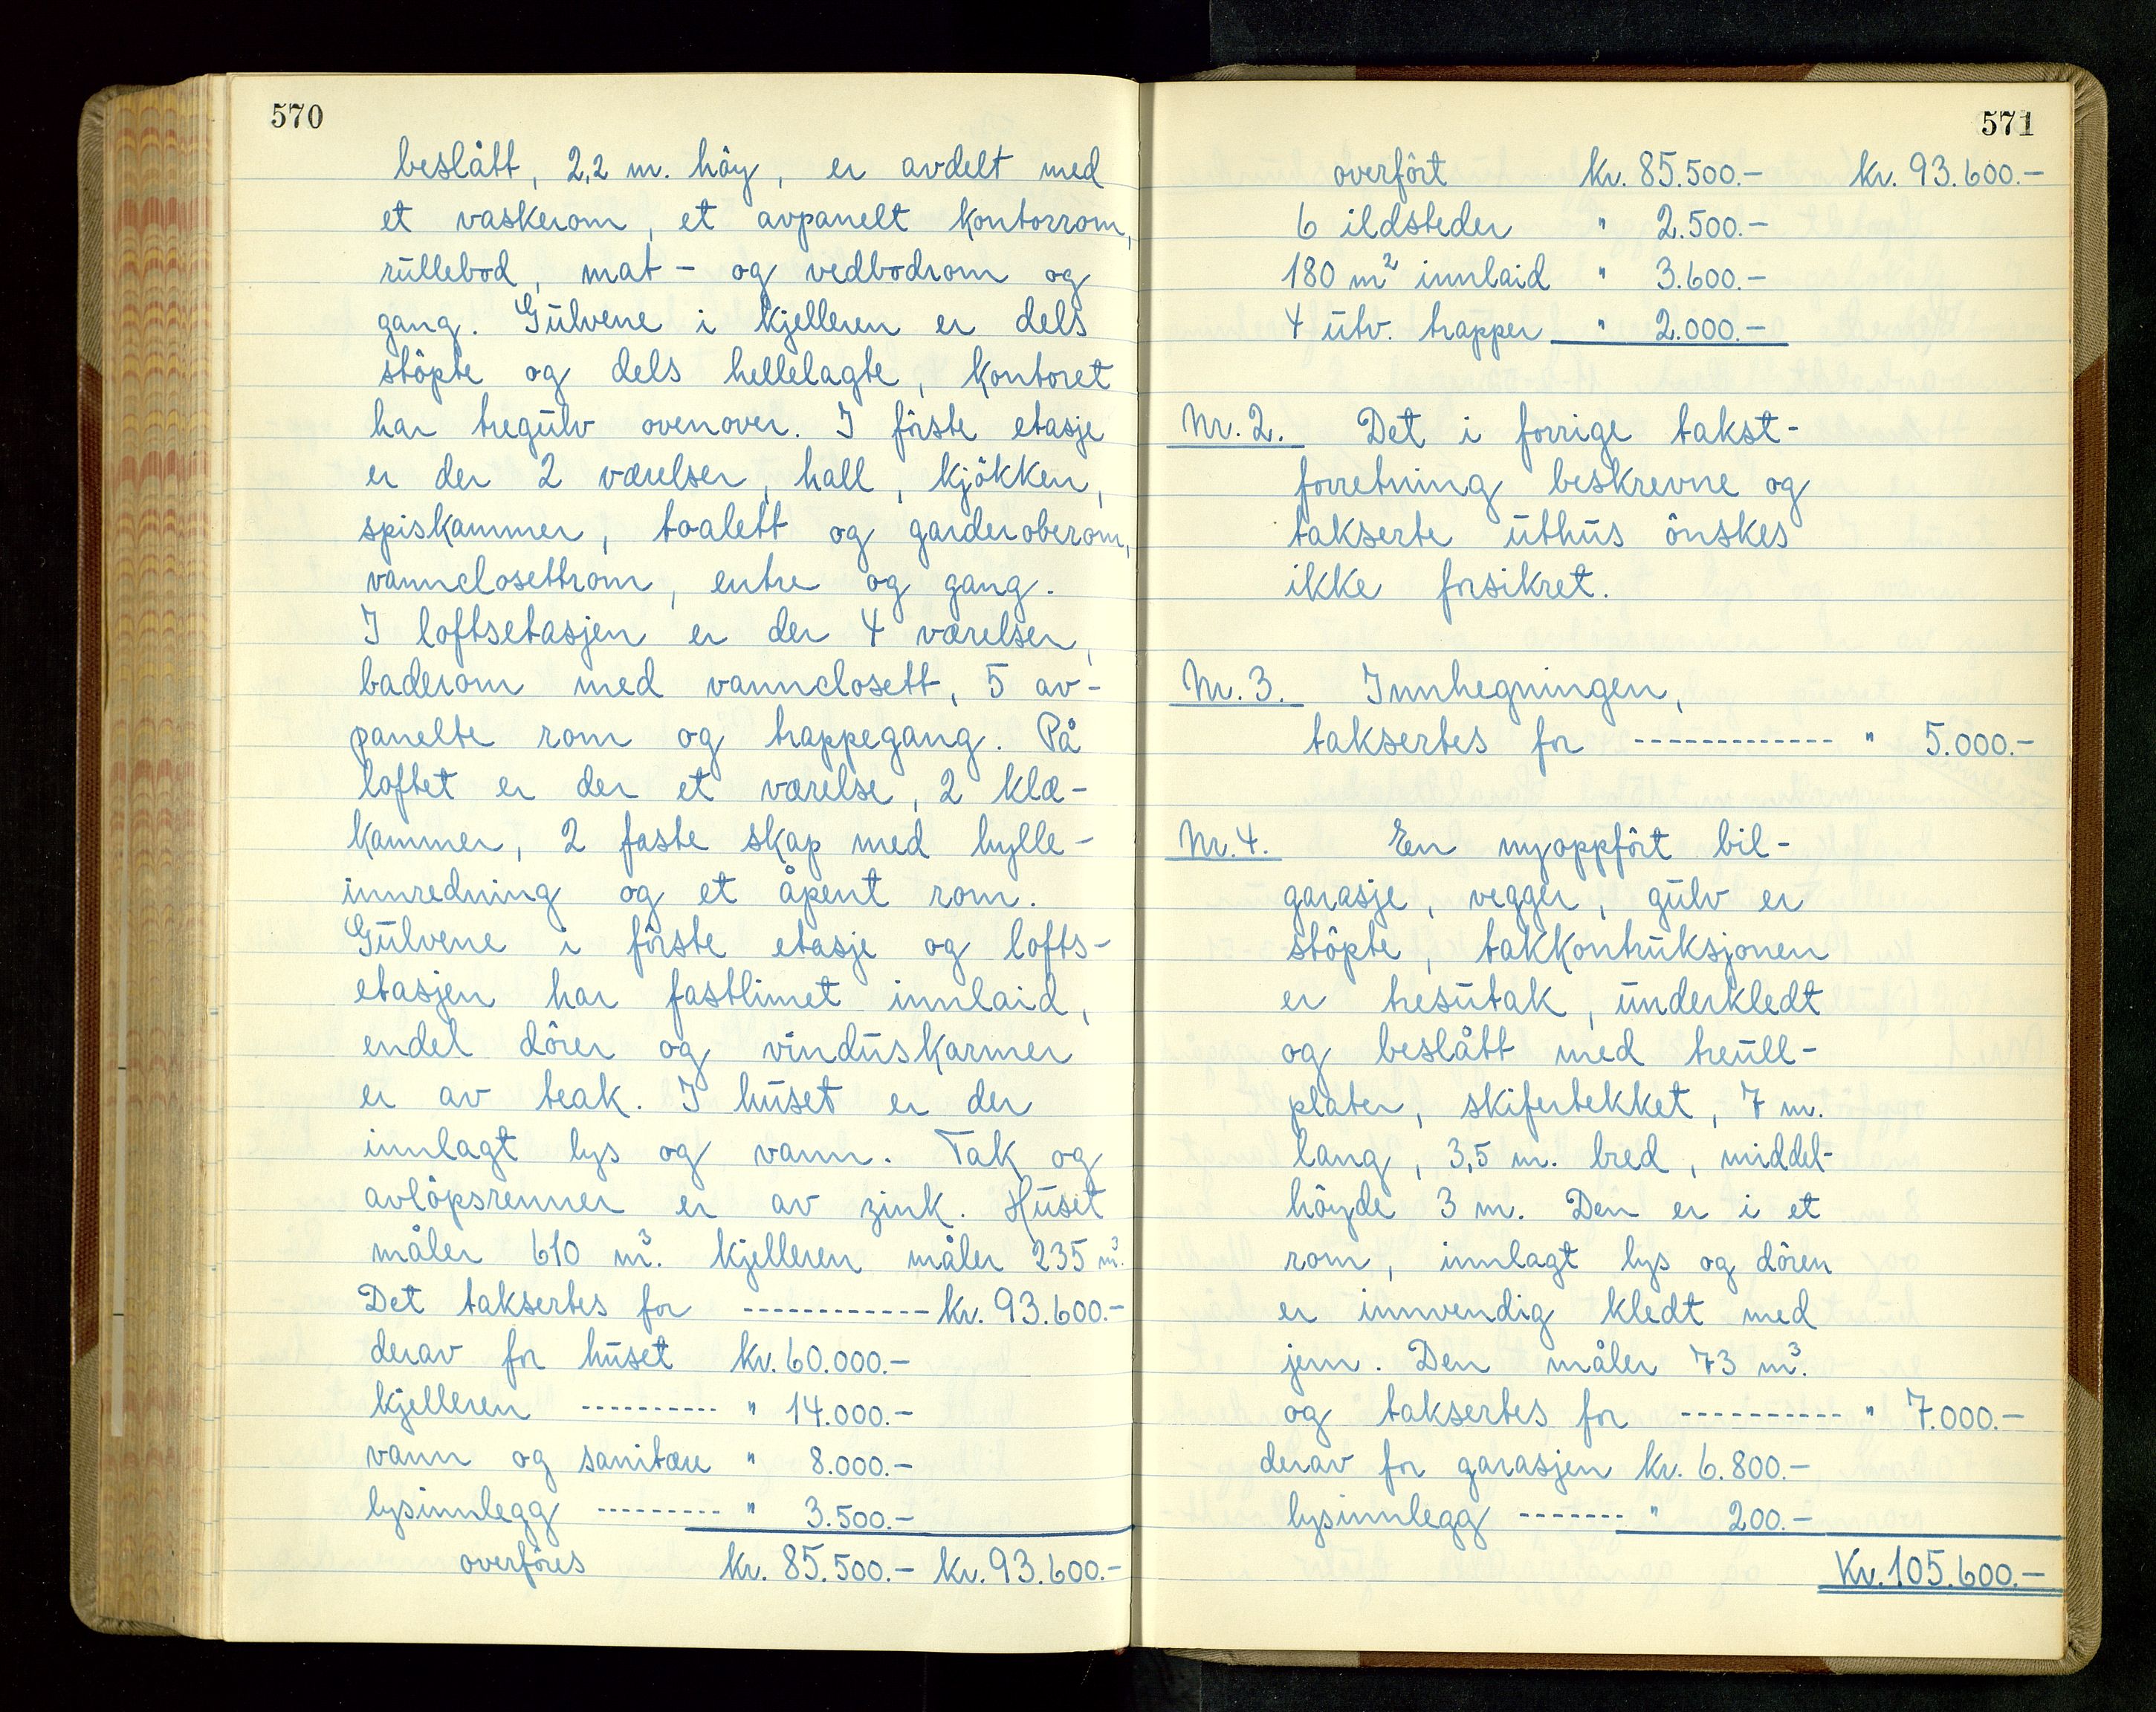 570
beslått, 2,2 m. höy, er avdelt med
et vaskerom, et avpanelt kontorrom,
rullebod, mat- og vedbodrom og
gang. Gulvene i kjelleren er dels
stöpte og dels hellelagte, kontoret
har tregulv ovenover. I förste etasje
er der 2 værelser, hall, kjökken,
spiskammer, toalett og garderoberom,
vannclosettrom, entre og gang.
I loftsetasjen er der 4 værelser,
baderom med vannclosett, 5 av-
panelte rom og trappegang. På
loftet er der et værelse, 2 klæ-
kammer, 2 faste skap med hylle-
innredning og et åpent rom.
Gulvene i förste etasje og lofts-
etasjen har fastlimet innlaid,
endel dörer og vinduskarmer
er av teak. I huset er der
innlagt lys og vann. Tak og
avlöpsrenner er av zink. Huset
måler 610 m³. kjelleren måler 235 m³.
Det taksertes for ------------ kr. 93.600.-
derav for huset kr. 60.000.-
kjelleren ---------- " 14.000.-
vann og sanitære " 8.000.-
lysinnlegg --------- " 3.500.-
overföres kr. 85.500.- kr. 93.600.-
571
overfört kr. 85.500.- kr. 93.600.-
6 ildsteder " 2.500.-
180 m² innlaid " 3.600.-
4 utv. trapper " 2.000.-
Nr. 2. Det i forrige takst-
forretning beskrevne og
takserte uthus önskes
ikke forsikret.
Nr. 3. Innhegningen,
taksertes for ------------- " 5.000.-
Nr. 4. En nyoppfört bil-
garasje, vegger, gulv er
stöpte, takkontruksjonen
er tresutak, underkledt
og beslått med treull-
plater, skifertekket, 7 m.
lang, 3,5 m. bred, middel-
höyde 3 m. Den er i et
rom, innlagt lys og dören
er innvendig kledt med
jern. Den måler 73 m³.
og taksertes for ---------- " 7.000.-
derav for garasjen kr. 6.800.-
lysinnlegg ------- " 200.-
Kr. 105.600.-